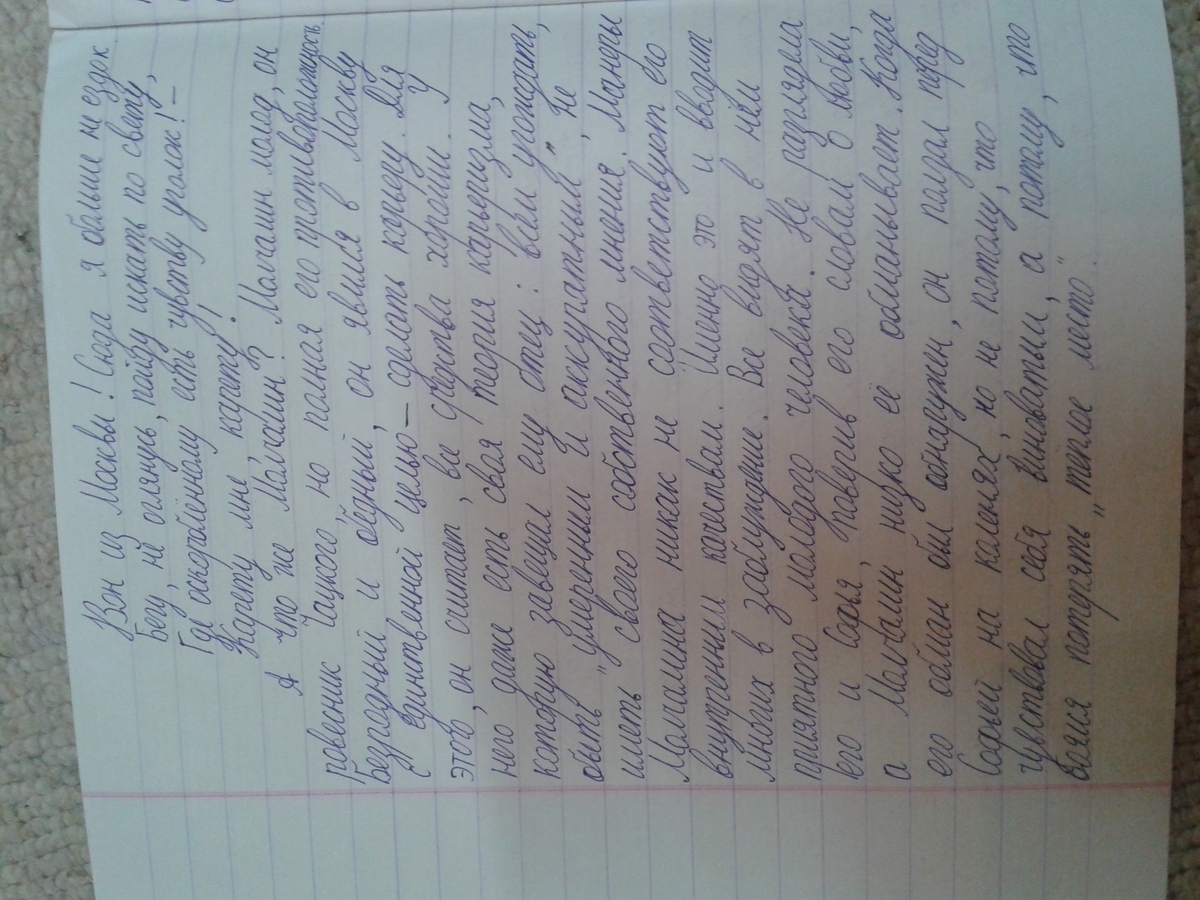 Вон из Москвы! Сюда я больше не ездок.
Бегу, не оглянусь, пойду искать по свету,
Где оскорблённому есть чувству уголок! –
Карету мне, карету!
А что же Молчалин? Молчалин молод, он
ровесник Чацкого, но полная его противоположность.
Безродный и бедный, он явился в Москву
с единственной целью – сделать карьеру. Для
этого, он считает, все средства хороши. У
него даже есть своя теория карьеризма,
которую завещал ему отец: всем угождать,
быть „умеренным и аккуратным", не
иметь своего собственного мнения. Манеры
Молчалина никак не соответствуют его
внутренним качествам. Именно это и вводит
многих в заблуждение. Все видят в нём
приятного молодого человека. Не разглядела
его и Софья, поверив его словам о любви,
а Молчалин низко её обманывает. Когда
его обман был обнаружен, он ползал перед
Софьей на коленях, но не потому, что
чувствовал себя виноватым, а потому, что
боялся потерять „тёплое место".